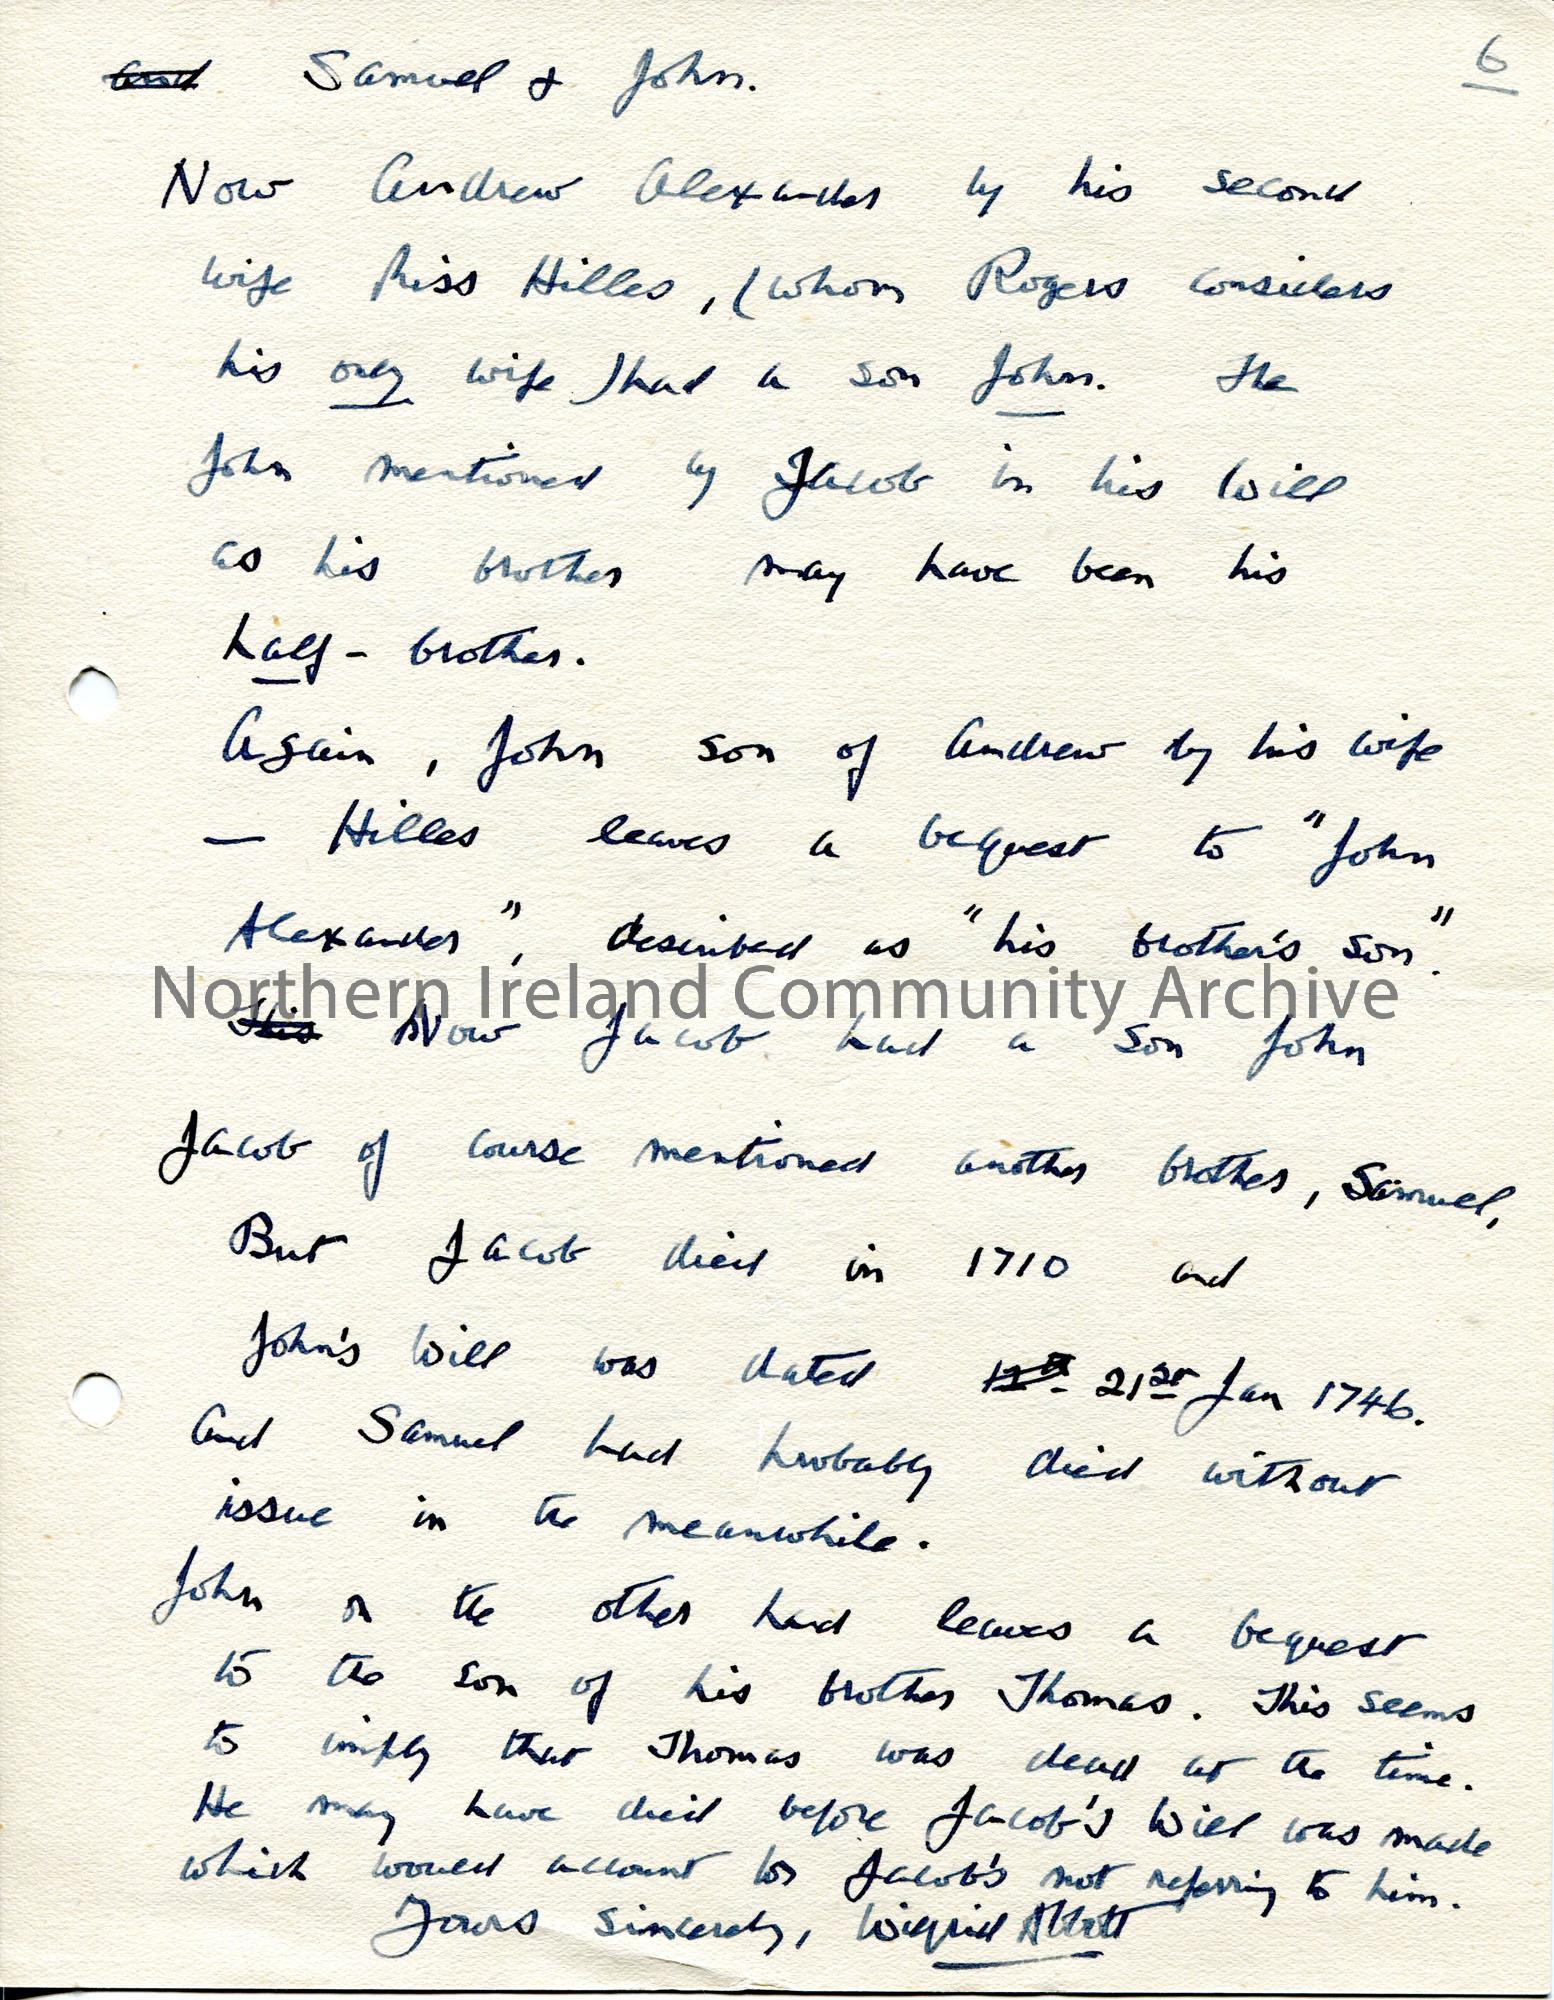 6
and Samuel & John.
Now Andrew Alexander by his second
wife Miss Hilles, (whom Rogers considers
his only wife) had a son John. The
John mentioned by Jacob in his Will
as his brother may have been his
half-brother.
Again, John son of Andrew by his wife
— Hilles leaves a bequest to "John
Alexander", described as "his brother's son".
Northern Ireland Community Archive
This Now Jacob had a son John
Jacob of course mentioned another brother, Samuel,
But Jacob died in 1710 and
John's Will was dated 12th 21st Jan 1746.
And Samuel had probably died without
issue in the meanwhile.
John on the other hand leaves a bequest
to the son of his brother Thomas. This seems
to imply that Thomas was dead at the time.
He may have died before Jacob's Will was made
which would account for Jacob's not referring to him.
Yours sincerely, Wilfrid Abbott